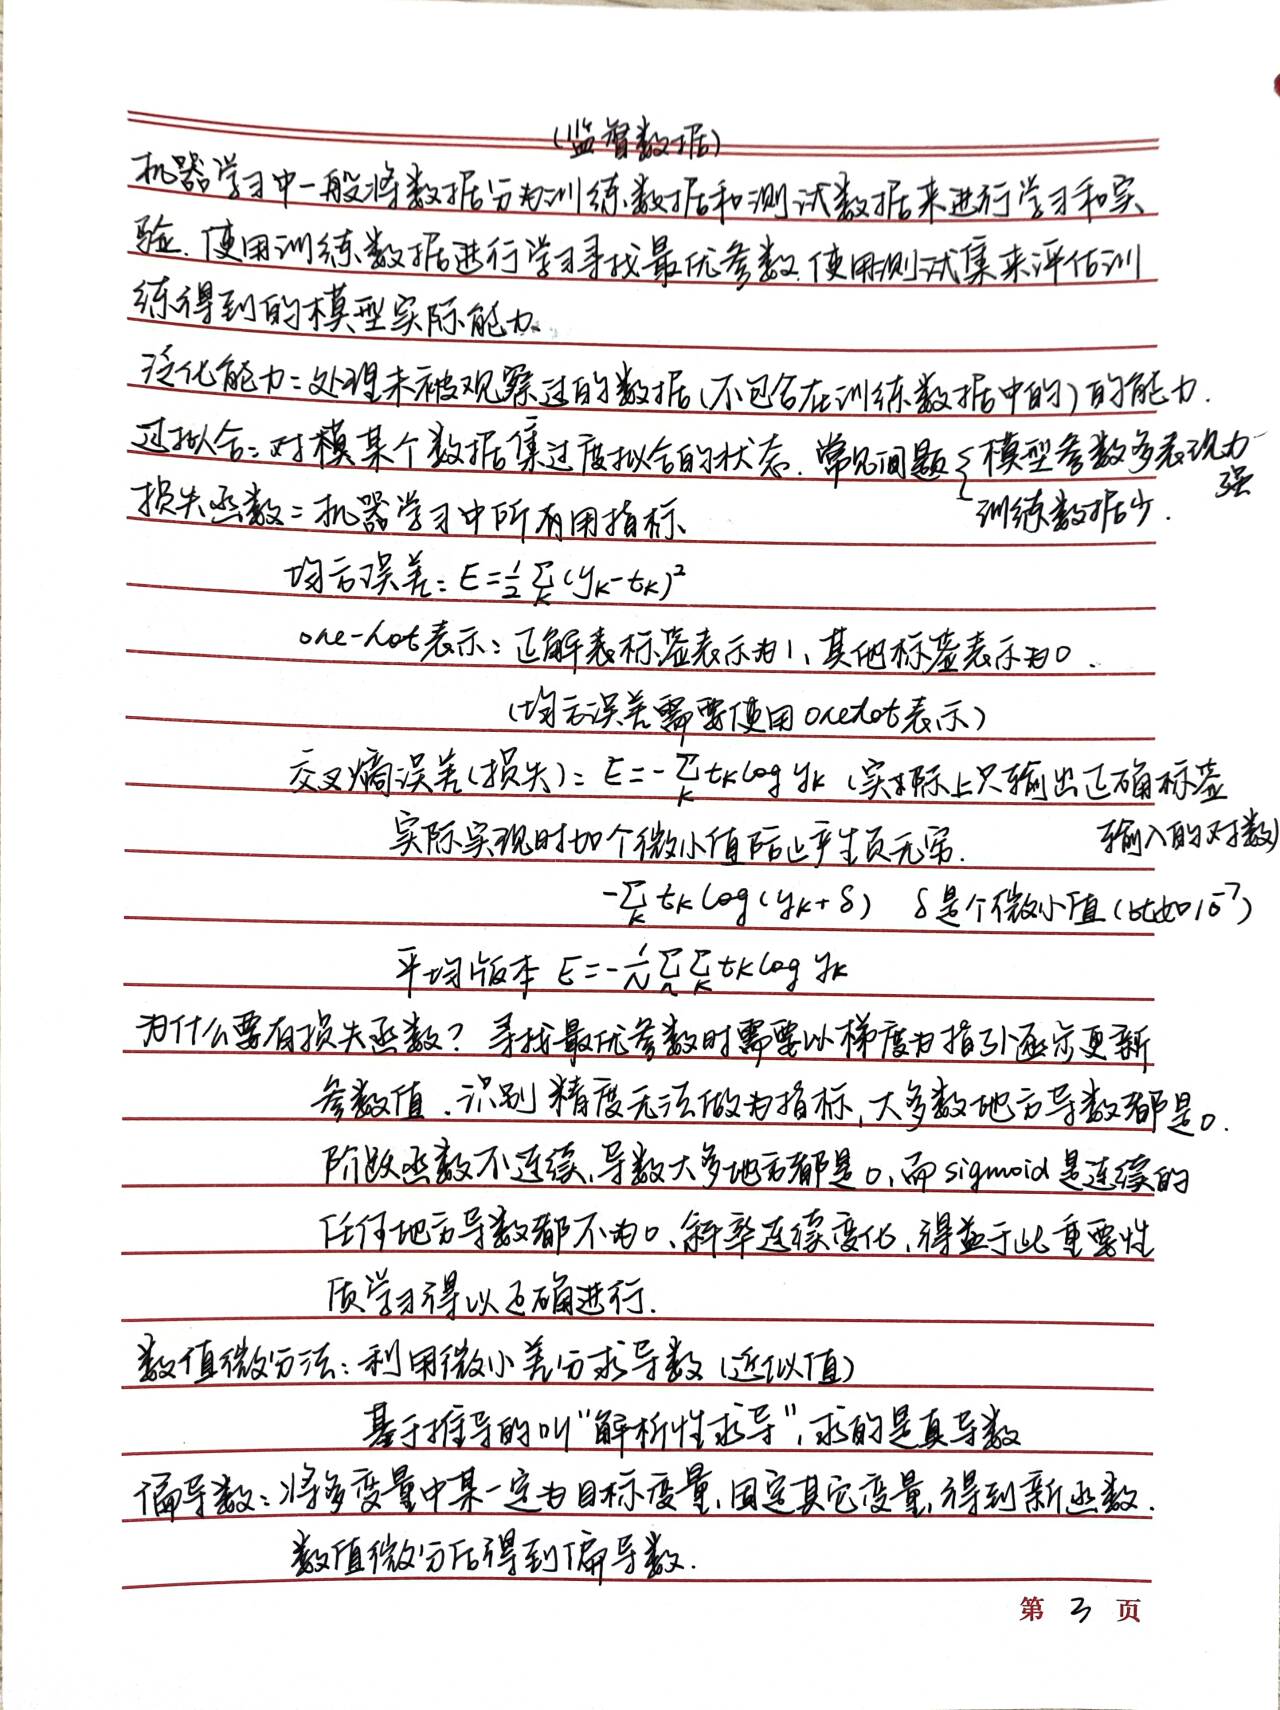 (监督数据)
机器学习中一般将数据分为训练数据和测试数据来进行学习和实
验.使用训练数据进行学习寻找最优参数.使用测试集来评估训
练得到的模型实际能力.
泛化能力:处理未被观察过的数据(不包含在训练数据中的)的能力.
过拟合:对模某个数据集过度拟合的状态.常见问题{模型参数多表现力
强
训练数据少.
损失函数:机器学习中所有用指标.
均方误差:E=½Σ_k(y_k-t_k)²
one-hot表示:正解表标签表示为1、其他标签表示为0.
(均方误差需要使用onehot表示)
交叉熵误差(损失):E=-Σ_k t_k log y_k (实际上只输出正确标签
输入的对数)
实际实现时加个微小值防止产生负无穷.
-Σ_k t_k log(y_k+δ) δ是个微小值(比如10⁻⁷)
平均版本 E=-1/N Σ_n Σ_k t_k log y_k
为什么要有损失函数?寻找最优参数时需要以梯度为指引逐步更新
参数值.识别精度无法做为指标,大多数地方导数都是0.
阶跃函数不连续,导数大多地方都是0,而sigmoid是连续的
任何地方导数都不为0、斜率连续变化,得益于此重要性
质学习得以正确进行.
数值微分法:利用微小差分求导数(近似值)
基于推导的叫"解析性求导",求的是真导数
偏导数:将多变量中某一定为目标变量,固定其它变量,得到新函数.
数值微分后得到偏导数.
第 3 页